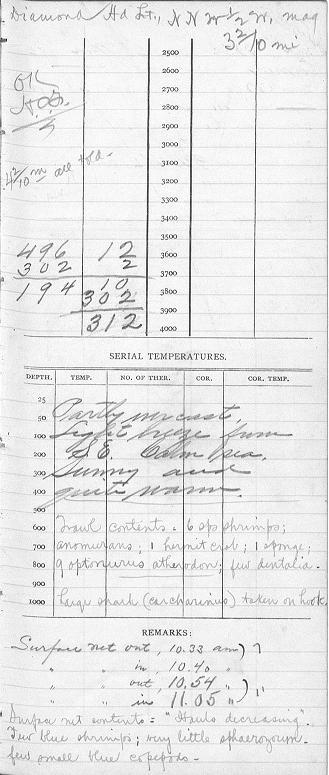 Diamond Hd Lt., N N W 1/2 W, mag
3 2/10 mi
2500
2600
OK
H.O.S.
2700
2800
2900
3000
4 2/10 m all told.
3100
3200
3300
3400
3500
496 12 3600
302 2 3700
194 10 3800
302 3900
312 4000
SERIAL TEMPERATURES.
DEPTH. TEMP. NO. OF THER. COR. COR. TEMP.
25 Partly overcast,
50
100 Light breeze from
200 S.E. Calm sea.
300 Sunny and
400 quite warm.
500
600 Trawl contents - 6 sps shrimps;
700 anomurans; 1 hermit crab; 1 sponge;
800 9 optonurus atherodon; few dentalia.
900
1000 Large shark (carcharinus) taken on hook.
REMARKS:
Surface net out, 10.33 am) 7
" " in, 10.40 "
" " out, 10.54 " ) 11
" " in 11.05 "
Surface net contents = "Hauls decreasing".
Few blue shrimps; very little sphaerozoum.
few small blue copepods -